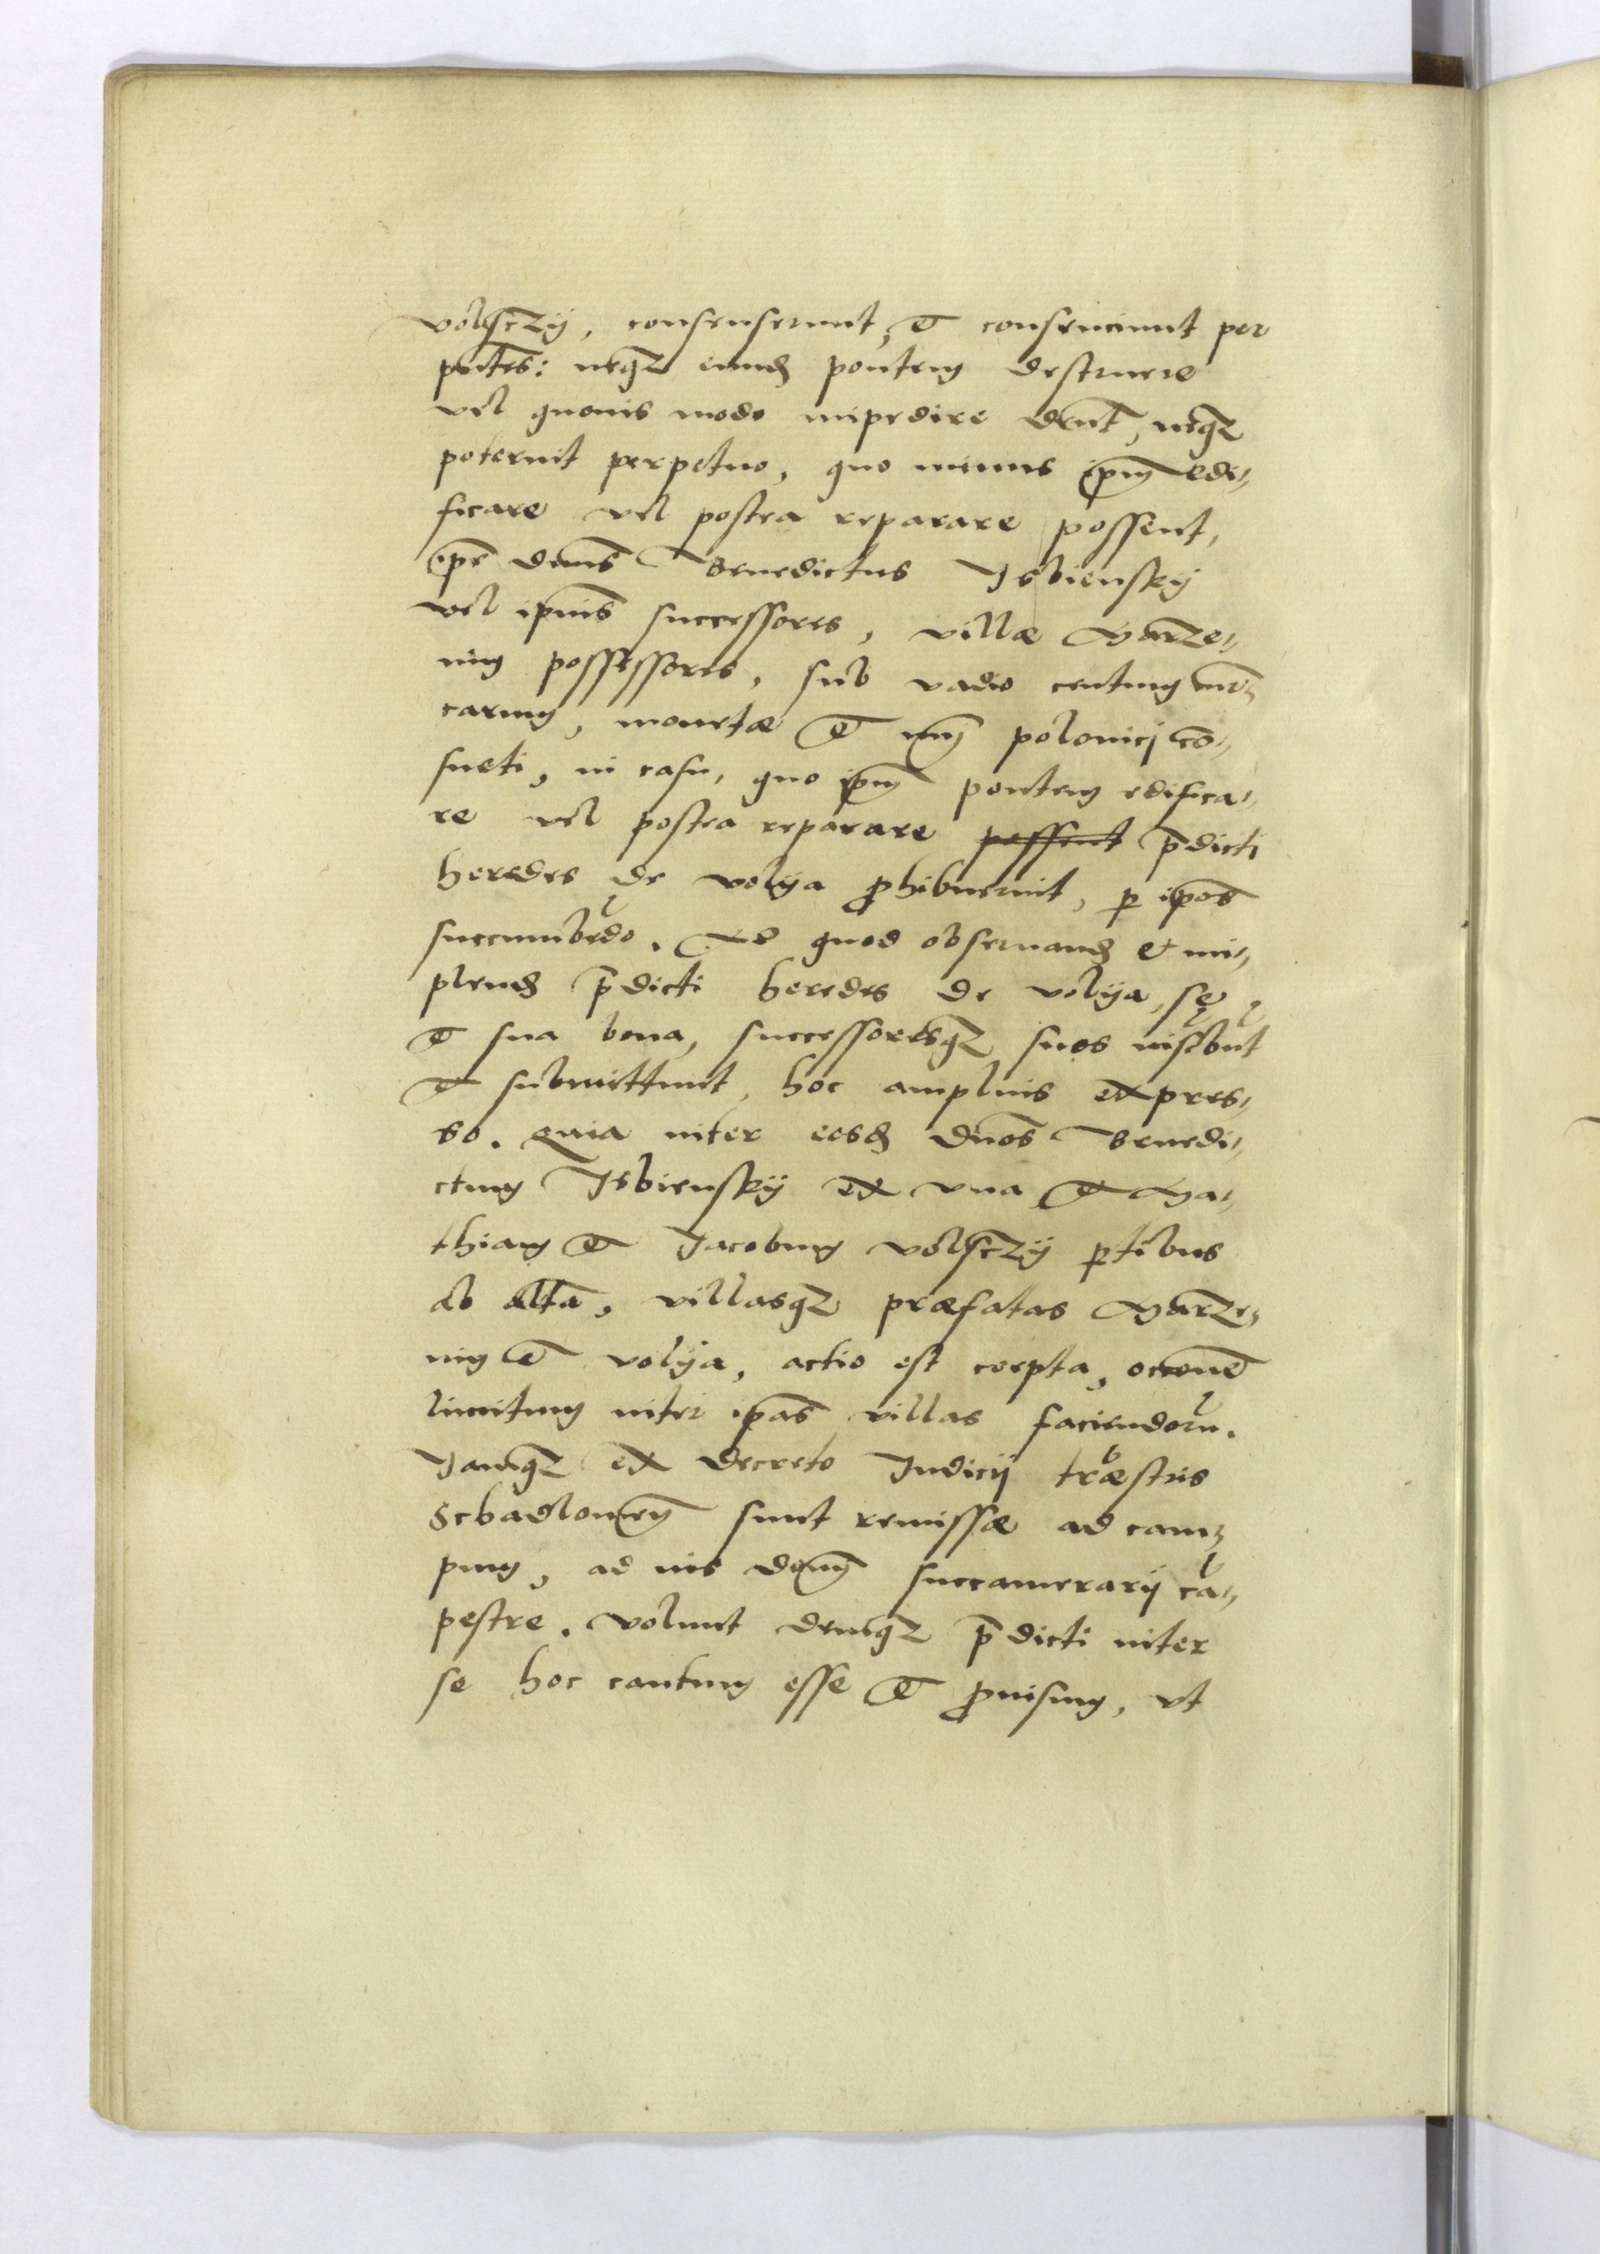 volsczÿ, consenserunt, et consenciunt per
pntes: neqz eund pontem destruere
vel quouis modo impedire dent, neqz
poterunt perpetuo, quo minus ipm edi„
ficare vel postea reparare possent,
ipse dnus Benedictus Isbienskÿ
vel ipius successores, villæ Garze„
nin possessores, sub vadio centum mr„
carum, monetæ et nuj polonicj co„
sueti, in casu, quo ipm pontem edifica„
re vel postea reparare possent pdicti
heredes de volÿa phibuerint, p ipos
succumbedo. Ad quod obseruand et im„
plend pdicti heredes de volÿa, se
et sua bona, successoresqz suos inscbut
et submittunt, hoc amplius expres„
so. Quia inter eosd dnos Benedi„
ctum Isbienskÿ ex vna et Ma„
thiam et Jacobum volsczÿ ptibus
ab altā, villasqz præfatas Garze„
nin et volÿa, actio est cœpta, occone
limitum inter ipas villas faciendoru.
Jamqz ex decreto Judicij træstris
Schadlouien sunt remissæ ad cam„
pum, ad ius dnj succamerarij ca„
pestre. volunt deniqz pdicti inter
se hoc cautum esse et puisum, vt